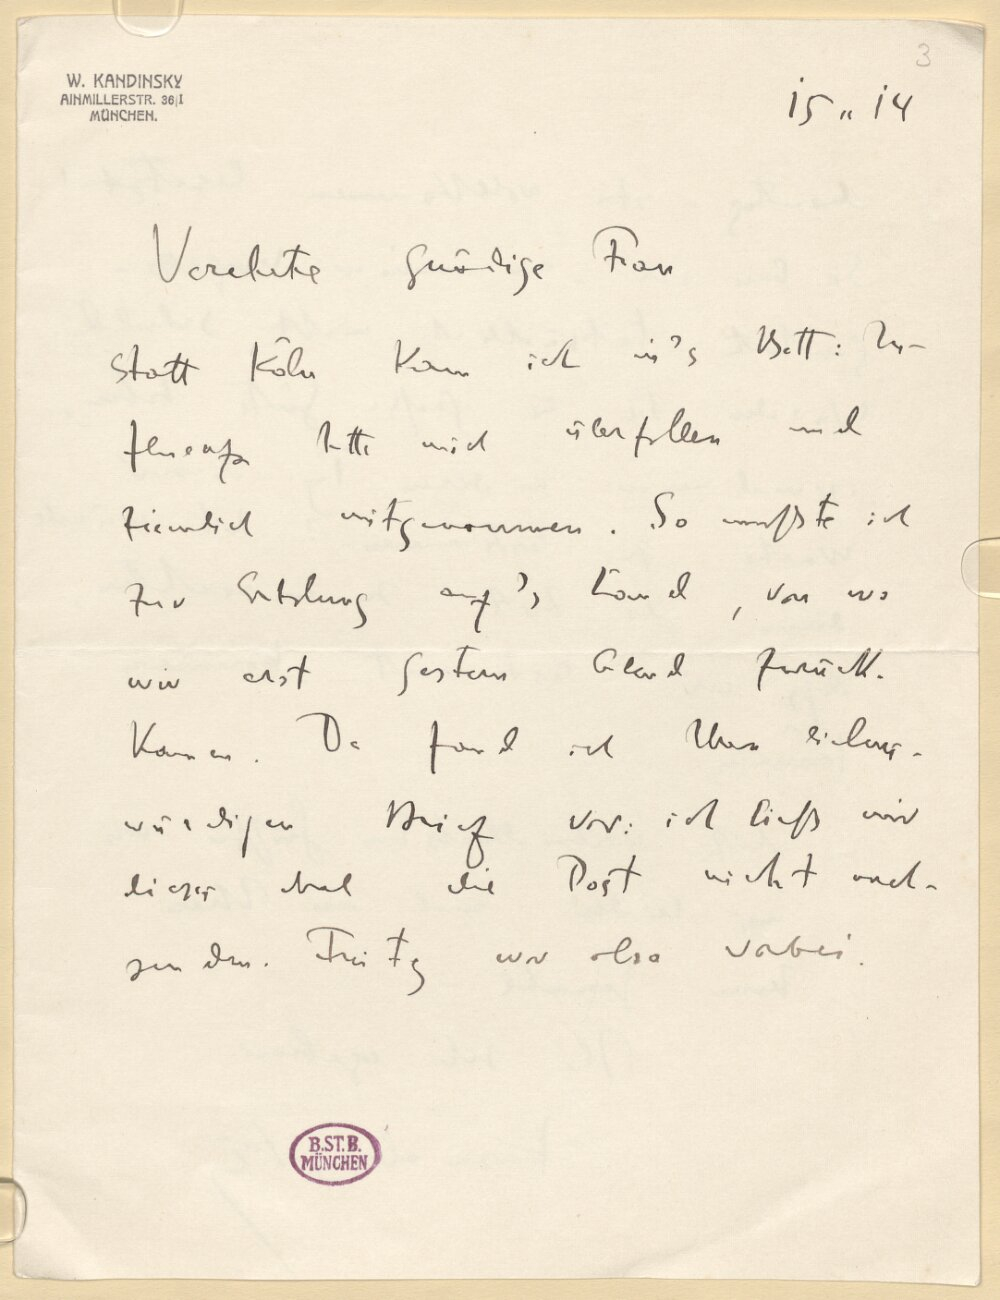 3
W. KANDINSKY
AINMILLERSTR. 36/I
MÜNCHEN.
15 II 14
Verehrte gnädige Frau
statt Köln kam ich in's Bett: In-
fluenza hatte mich überfallen und
ziemlich mitgenommen. So mußte ich
zur Erholung auf's Land, von wo
wir erst gestern Abend zurück-
kamen. Da fand ich Ihren liebens-
würdigen Brief vor: ich ließ mir
dieses Mal die Post nicht nach-
senden. war also vorbei.
B.ST.B.
MÜNCHEN